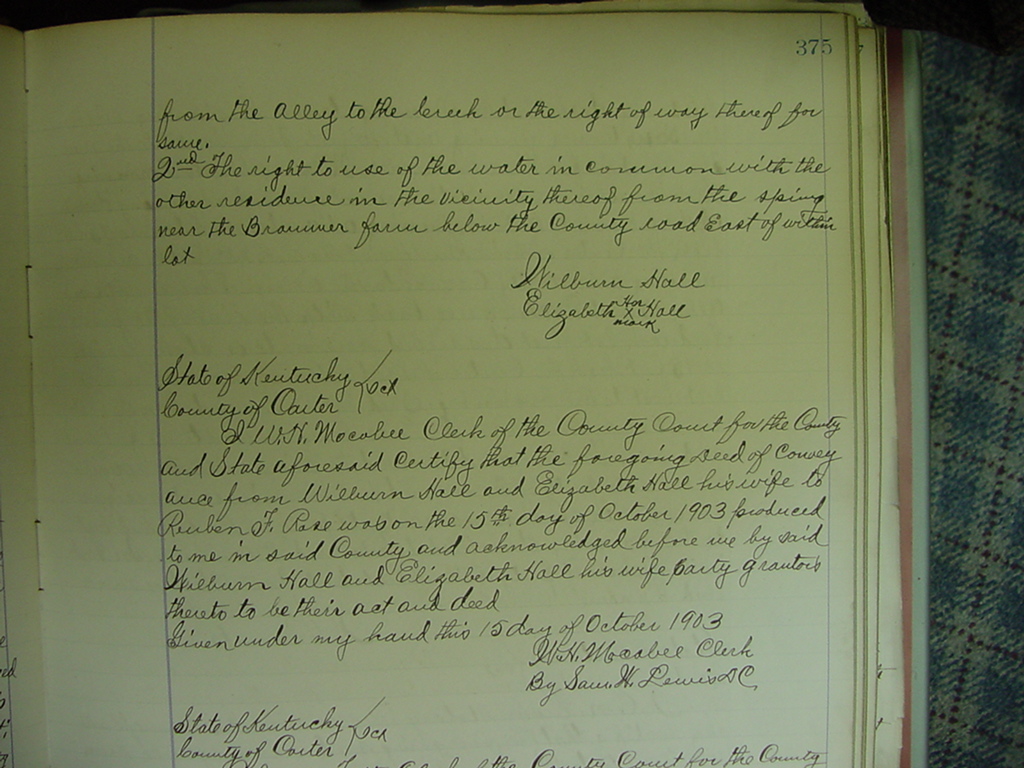 375
from the Alley to the Creek or the right of way thereof for
same.
2nd The right to use of the water in common with the
other residence in the vicinity thereof from the spring
near the Brammer farm below the County road East of within
lot
Wilburn Hall
Elizabeth Her X mark Hall
State of Kentucky } Sct
County of Carter
I W.H. Mocabee Clerk of the County Court for the County
and State aforesaid Certify that the foregoing Deed of Convey
ance from Wilburn Hall and Elizabeth Hall his wife to
Reuben F. Rase was on the 15th day of October 1903 produced
to me in said County and acknowledged before me by said
Wilburn Hall and Elizabeth Hall his wife party grantors
thereto to be their act and deed
Given under my hand this 15 day of October 1903
W.H. Mocabee Clerk
By Sam. H. Lewis D.C.
State of Kentucky } Sct
County of Carter
Clerk of the County Court for the County